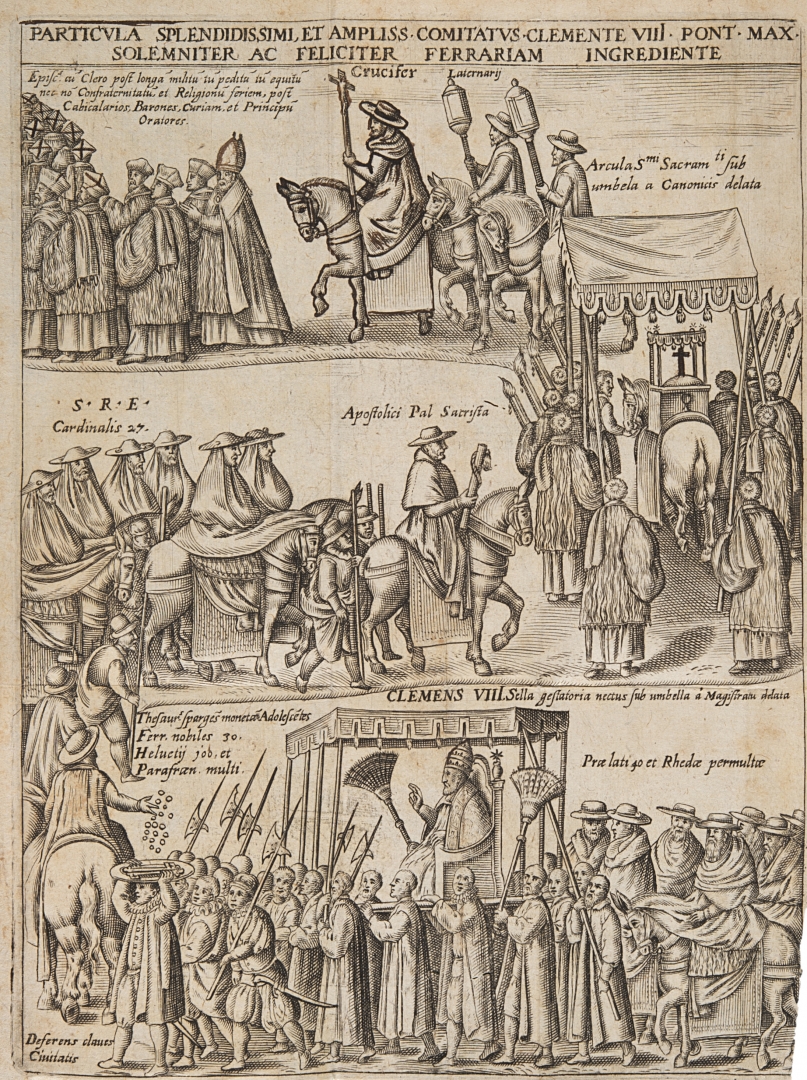 PARTICVLA SPLENDIDISSIMI, ET AMPLISS·COMITATVS·CLEMENTE VIII· PONT· MAX·
SOLEMNITER AC FELICITER FERRARIAM INGREDIENTE
Episc. cũ Clero post longa militũ tũ peditũ tũ equitũ
nec no Confraternitatũ et Religionũ seriem, post
Cubicularios, Barones, Curiam, et Principũ
Oratores.
Crucifer
Laternarij
Arcula Smi Sacramti sub
umbela a Canonicis delata
S· R· E·
Cardinalis 27·
Apostolici Pal Sacrista
CLEMENS VIII. Sella gestatoria vectus sub umbella à Magistratu delata
Thesaur9 spargẽs monetã Adolescẽtes
Ferr. nobiles 30.
Heluetij job. et
Parafræn. multi.
Prælati 40 et Rhedæ permultæ
Deferens claues
Ciuitatis